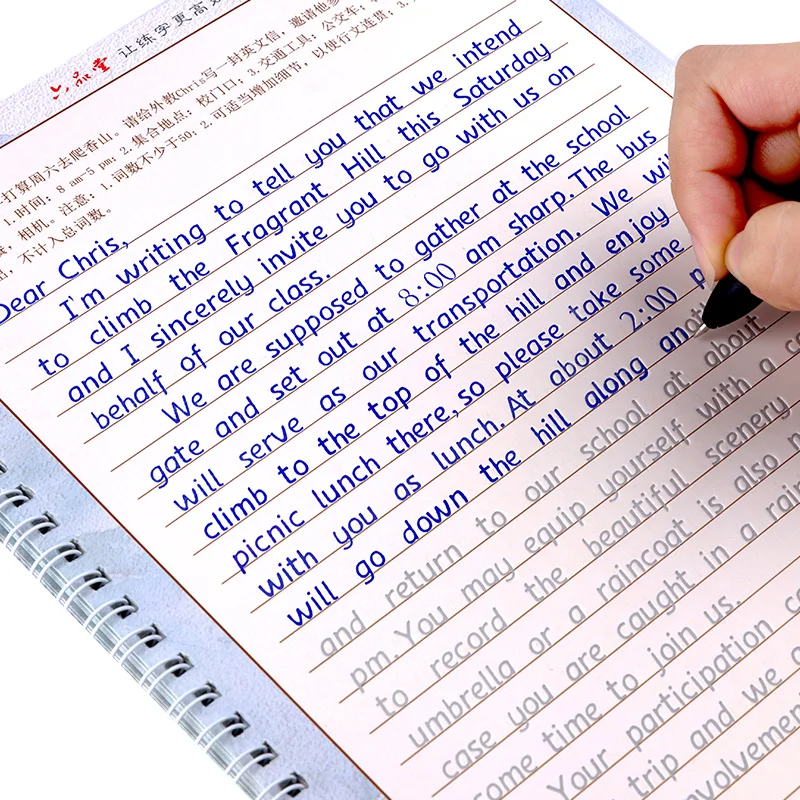 六品堂 让练字更高效
打算周六去爬香山。请给外教Chris写一封英文信，邀请他参
1.时间：8 am-5 pm；2.集合地点：校门口；3.交通工具：公交车；
相机。注意：1.词数不少于50；2.可适当增加细节，以使行文连贯；3.
不计入总词数。
Dear Chris,
I'm writing to tell you that we intend
to climb the Fragrant Hill this Saturday
and I sincerely invite you to go with us on
behalf of our class.
We are supposed to gather at the school
gate and set out at 8:00 am sharp. The bus
will serve as our transportation. We wil
climb to the top of the hill and enjoy
picnic lunch there, so please take some
with you as lunch. At about 2:00 p
will go down the hill along another
and return to our school at about
pm. You may equip yourself with a ca
to record the beautiful scenery
umbrella or a raincoat is also n
case you are caught in a rain
some time to join us.
Your participation ca
trip and we a
involvemen